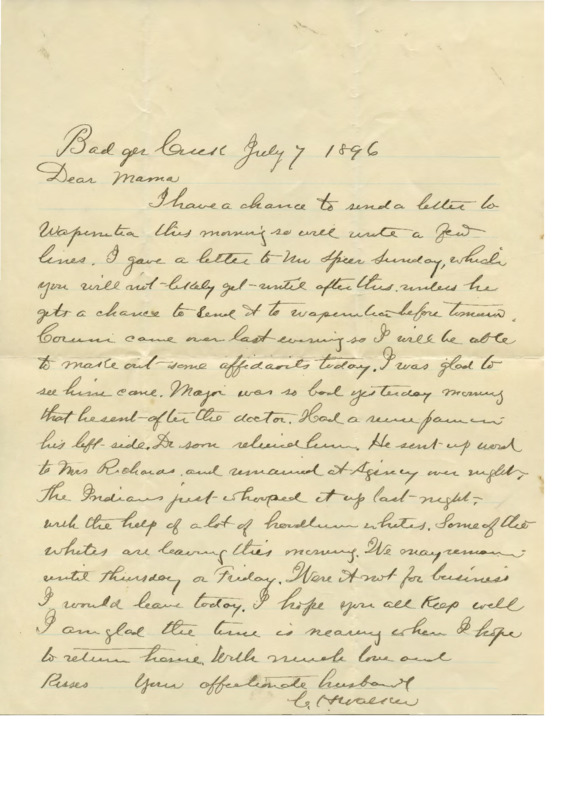 Badger Creek July 7 1896
Dear Mama
I have a chance to send a letter to
Wapinitia this morning so will write a few
lines. I gave a letter to Mr Speer Sunday, which
you will not likely get until after this. unless he
gets a chance to send it to wapinitia before tomorrow.
came over last evening so I will be able
to make out some affidavits today. I was glad to
see him come. Major was so bad yesterday morning
that he sent after the doctor. Had a severe pain in
his left side. Dr soon relieved him. He sent up word
to Mrs Richards. and remained at Agency over night.
The Indians just whooped it up last night,
with the help of a lot of hoodlum whites. Some of the
whites are leaving this morning. We may remain
until Thursday or Friday. Were it not for business
I would leave today. I hope you all keep well
I am glad the time is nearing when I hope
to return home. With much love and
Kisses Your affectionate husband
C. H. Walker